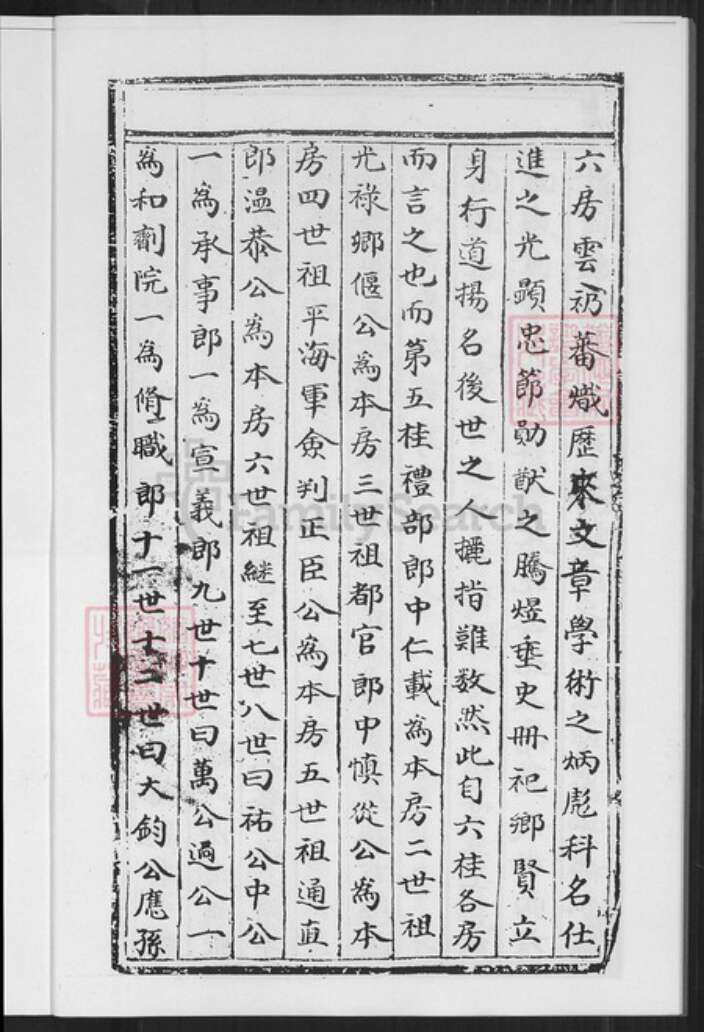 六房雲礽蕃熾歷來文章學術之炳彪科名仕
進之光顯忠節勛猷之騰煜垂史冊祀鄉賢立
身行道揚名後世之人擢指難数然此自六桂各房
而言之也而第五桂禮部郎中仁載為本房二世祖
光祿卿偃公為本房三世祖都官郎中慎從公為本
房四世祖平海軍僉判正臣公為本房五世祖通直
郎溫恭公為本房六世祖継至七世八世曰祐公中公
一為承事郎一為宣義郎九世十世曰萬公過公一
為和劑院一為脩職郎十一世十二世曰大鈞公應孫
FamilySearch